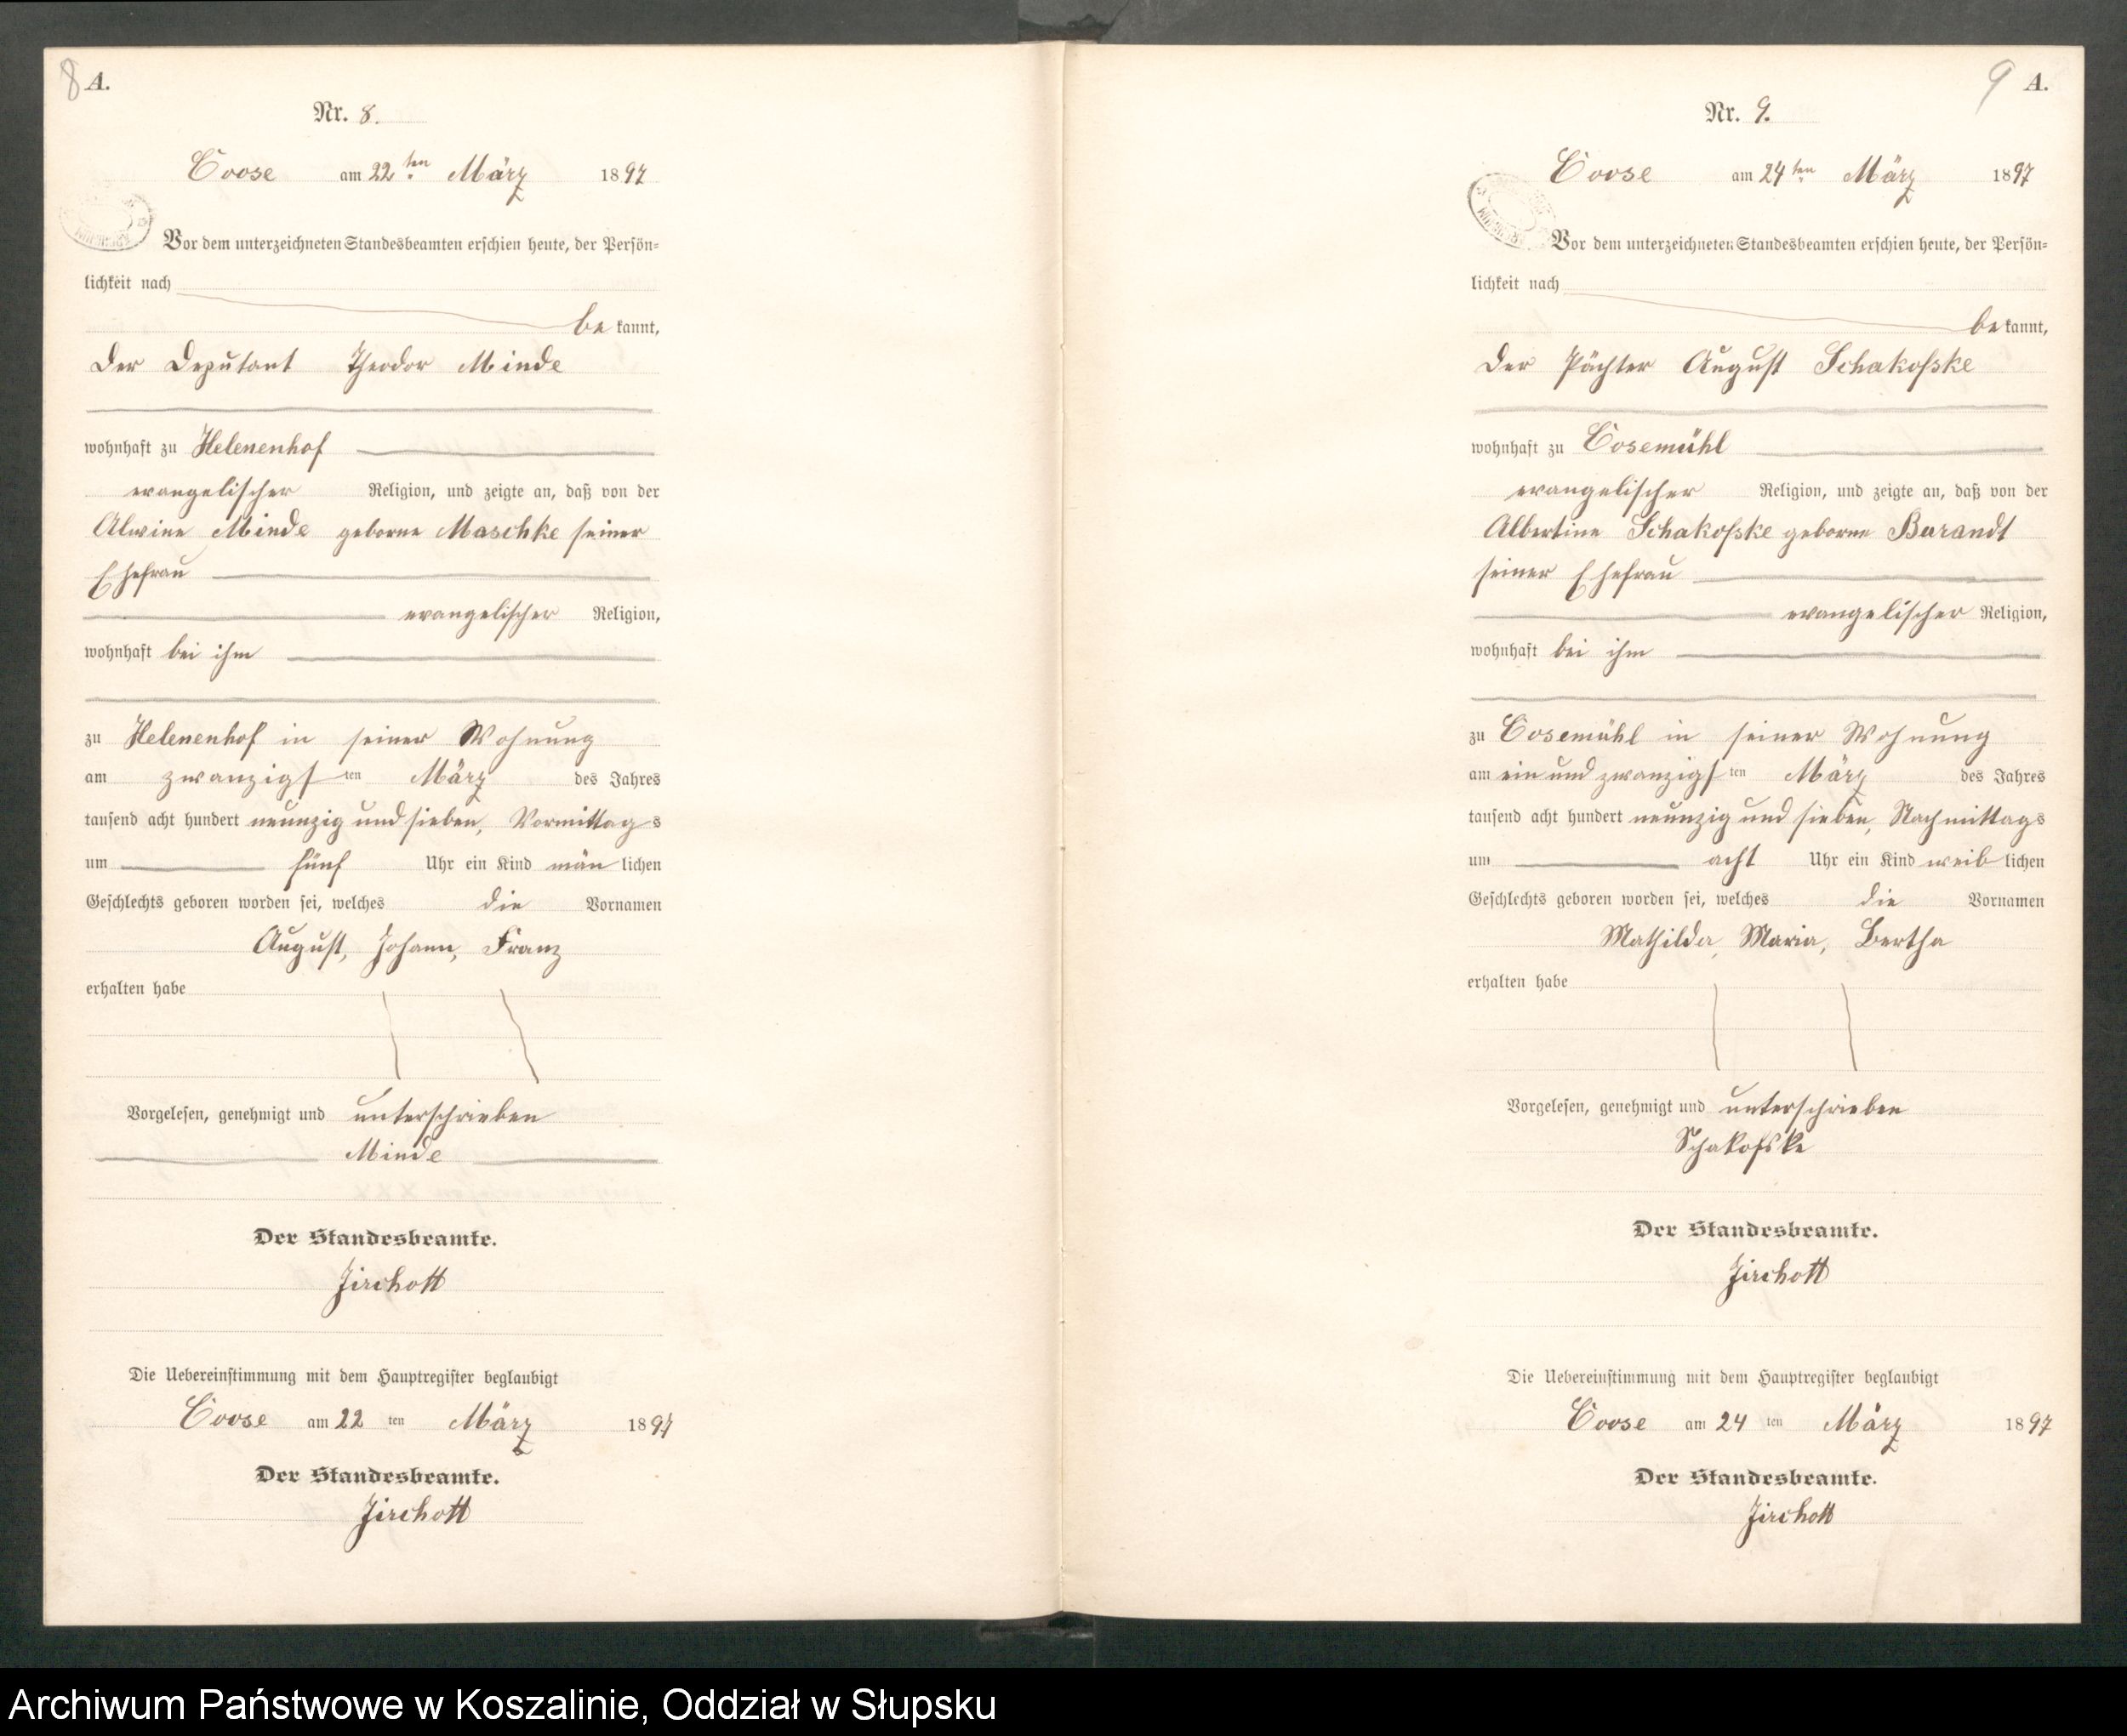 8 A.
Nr. 8.
Coose am 22ten März 1897
Vor dem unterzeichneten Standesbeamten erschien heute, der Persön-
lichkeit nach
be kannt,
Der Deputant Theodor Minde
wohnhaft zu Helenenhof
evangelischer Religion, und zeigte an, daß von der
Alwine Minde geborne Maschke seiner
Ehefrau
evangelischer Religion,
wohnhaft bei ihm
zu Helenenhof in seiner Wohnung
am zwanzigsten März des Jahres
tausend acht hundert neunzig und sieben, Vormittags
um fünf Uhr ein Kind män lichen
Geschlechts geboren worden sei, welches die Vornamen
August, Johann, Franz
erhalten habe
Vorgelesen, genehmigt und unterschrieben
Minde
Der Standesbeamte.
Jirchott
Die Uebereinstimmung mit dem Hauptregister beglaubigt
Coose am 22 ten März 1897
Der Standesbeamte.
Jirchott
9 A.
Nr. 9.
Coose am 24ten März 1897
Vor dem unterzeichneten Standesbeamten erschien heute, der Persön-
lichkeit nach
be kannt,
Der Pächter August Schakofske
wohnhaft zu Cosemühl
evangelischer Religion, und zeigte an, daß von der
Albertine Schakofske geborne Barandt
seiner Ehefrau
evangelischer Religion,
wohnhaft bei ihm
zu Cosemühl in seiner Wohnung
am ein und zwanzigsten März des Jahres
tausend acht hundert neunzig und sieben, Nachmittags
um acht Uhr ein Kind weib lichen
Geschlechts geboren worden sei, welches die Vornamen
Mathilda, Maria, Bertha
erhalten habe
Vorgelesen, genehmigt und unterschrieben
Schakofske
Der Standesbeamte.
Jirchott
Die Uebereinstimmung mit dem Hauptregister beglaubigt
Coose am 24 ten März 1897
Der Standesbeamte.
Jirchott
Archiwum Państwowe w Koszalinie, Oddział w Słupsku